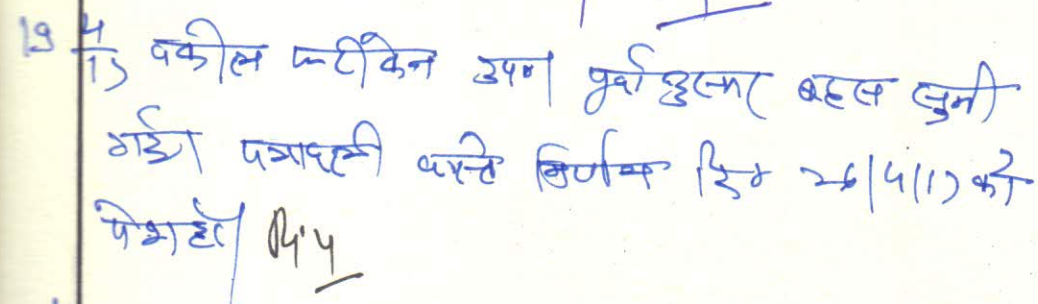 19/4/17 वकील फरीकेन उप० पूर्वानुसार बहस सुनी
गई। पत्रावली वास्ते निर्णय दि० 26/4/17 को
पेश हो।